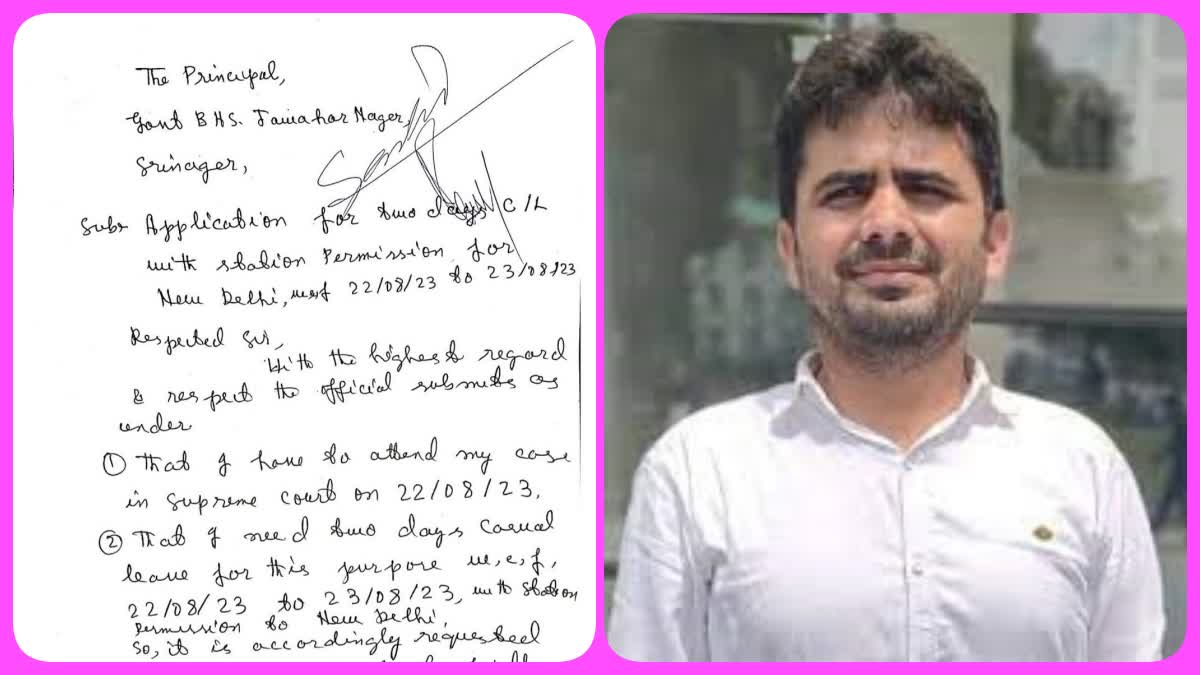 The Principal,
Govt BHS. Jawahar Nager,
Srinager,
Sub:- Application for two days C/L
with station Permission for
New Delhi, wef 22/08/23 to 23/08/23
Respected Sir,
With the highest regard
& respect the official submits as
under
① That I have to attend my case
in Supreme Court on 22/08/23.
② That I need two days Casual
leave for this purpose w.e.f.
22/08/23 to 23/08/23, with station
Permission to New Delhi.
So, it is accordingly requested